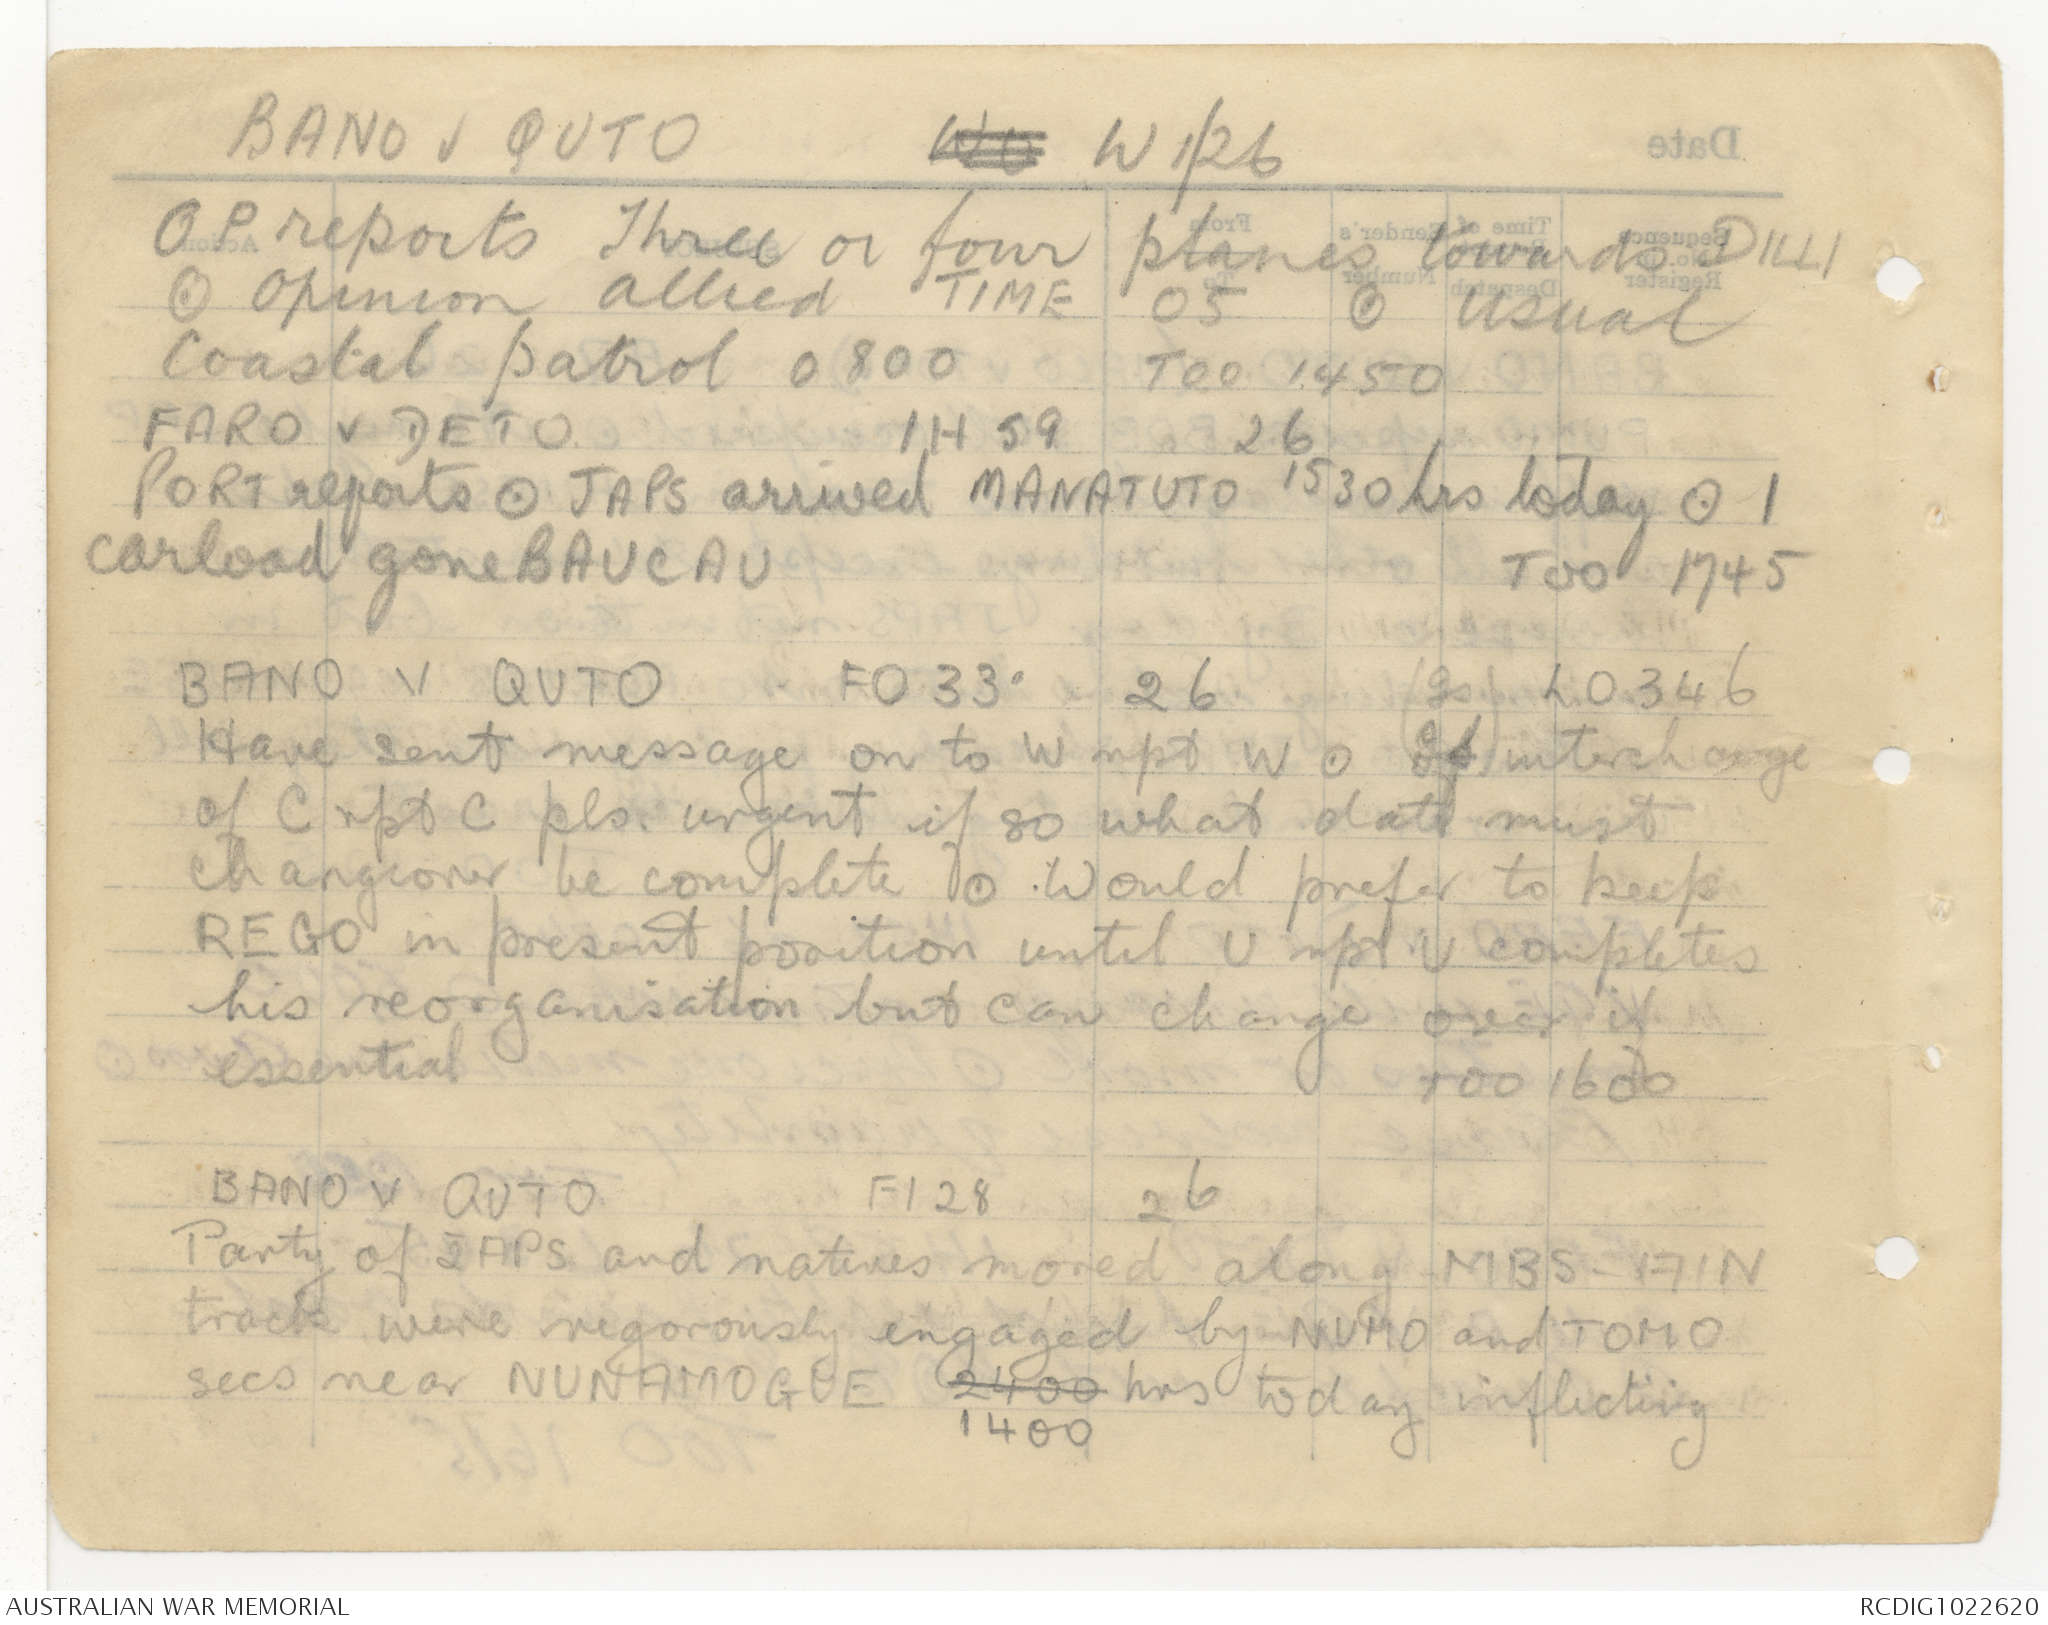 BANO V QUTO W 1/26
OP reports Three or four planes towards DILLI
⊙ Opinion allied TIME 05 ⊙ Usual
Coastal patrol 0800 TOO 1450
FARO V DETO 1H 59 26
PORT reports ⊙ JAPS arrived MANATUTO 1530 hrs today ⊙ 1
carload gone BAUCAU TOO 1745
BANO V QUTO FO 33 26 (Is) LO346
Have sent message on to W rpt W ⊙ If interchange
of C rpt C pls. urgent if so what date must
changeover be complete ⊙ Would prefer to keep
REGO in present position until U rpt U completes
his reorganisation but can change over if
essential TOO 1600
BANO V QUTO F128 26
Party of JAPS and natives moved along MBS-
track were vigorously engaged by NUMO and TOMO
secs near NUNAMOGUE 2400 hrs today inflicting
1400
Date
AUSTRALIAN WAR MEMORIAL RCDIG1022620